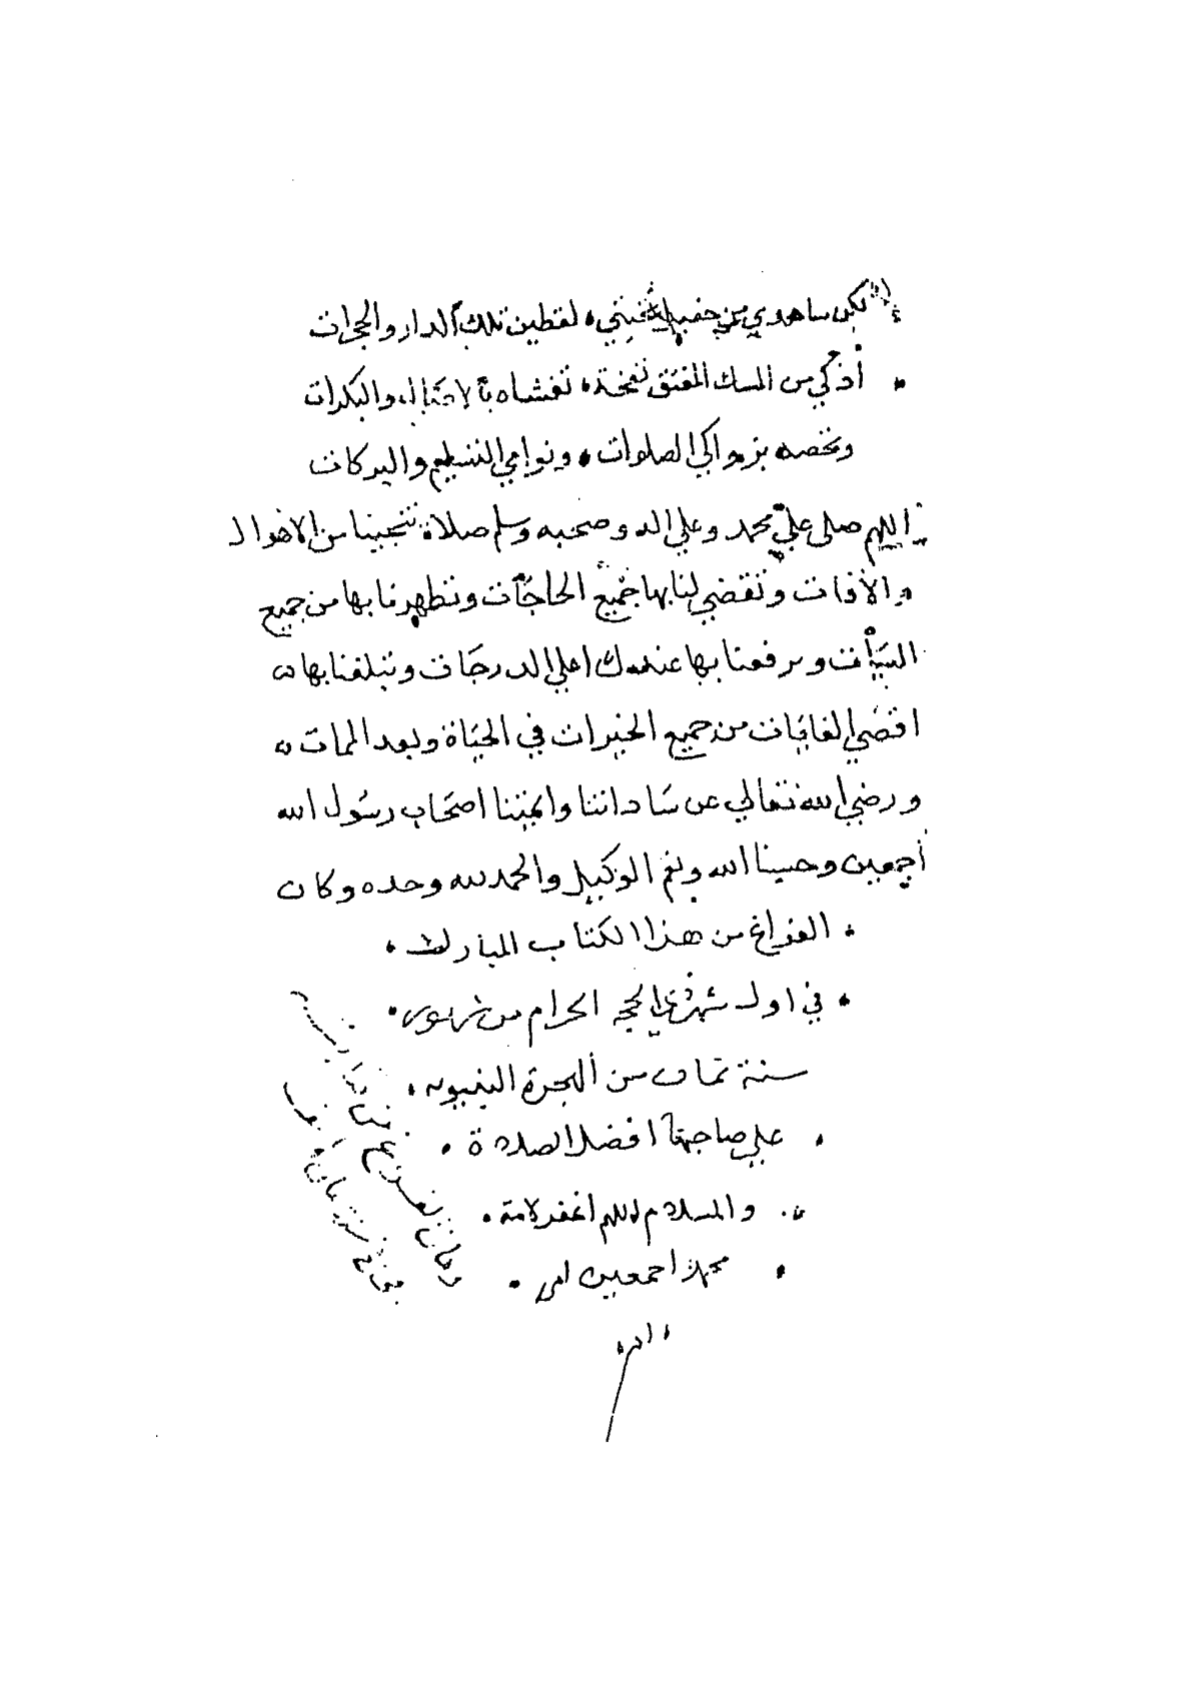 لكن ساهدي من حفيل تحيتي، لقطين تلك الدار والحجرات
أذكي من المسك المفتق نفحة، تغشاه بالاصال والبكرات
وتخصه بزواكي الصلوات، ونوامي التسليم والبركات
اللهم صلى علي محمد وعلي اله وصحبه وسلم صلاة تنجينا من الاهوال
والافات وتقضي لنا بها جميع الحاجات وتطهرنا بها من جميع
السيأت وترفعنا بها عندك اعلي الدرجات وتبلغنا بها
اقصي الغايات من جميع الخيرات في الحياة وبعد الممات
ورضي الله تعالي عن ساداتنا وايمتنا اصحاب رسول الله
أجمعين وحسبنا الله ونعم الوكيل والحمد لله وحده وكان
الفراغ من هذا الكتاب المبارك
في اول شهر ذي الحجه الحرام من شهور
سنة ثمان من الهجرة النبويه
علي صاحبها افضل الصلاة
والسلام اللهم اغفر لامة
محمد اجمعين امين